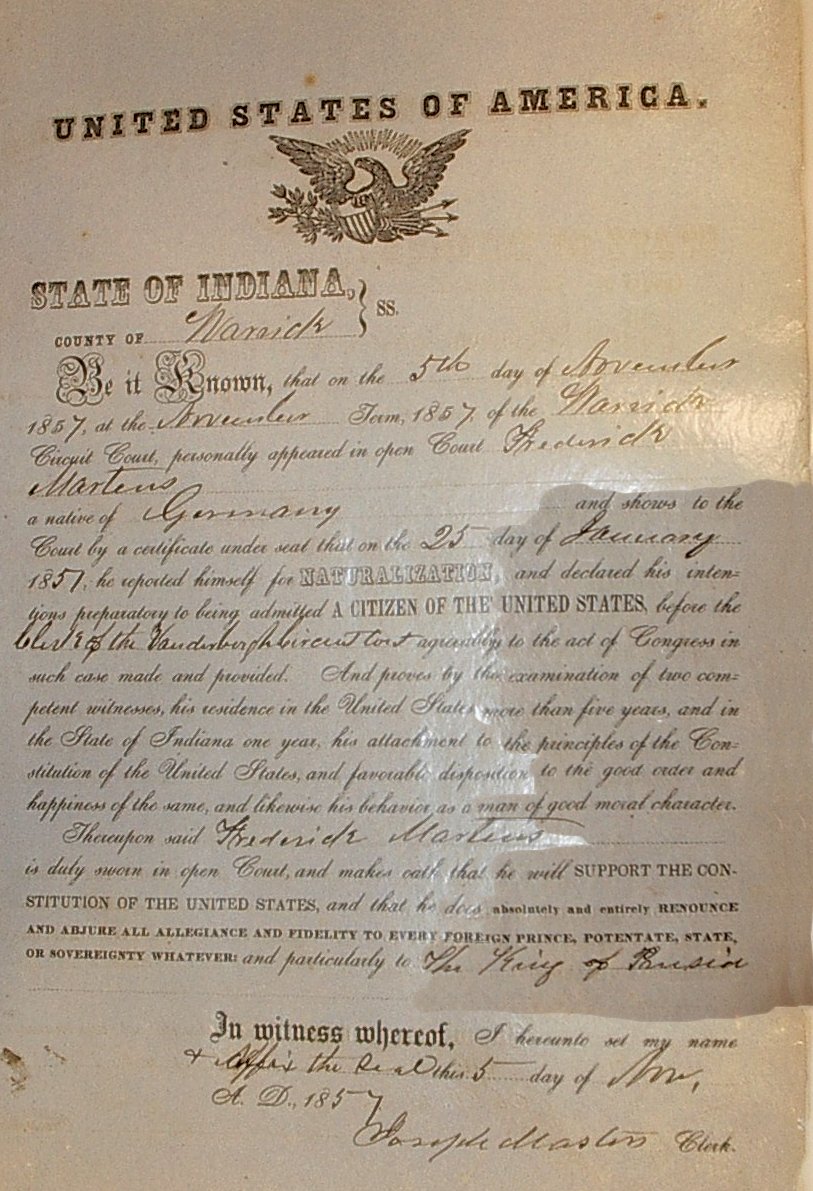 UNITED STATES OF AMERICA.
STATE OF INDIANA, } SS.
COUNTY OF Warrick
Be it Known, that on the 5th day of November
1857, at the November Term, 1857, of the Warrick
Circuit Court, personally appeared in open Court Frederick
Martens
a native of Germany and shows to the
Court by a certificate under seal that on the 25 day of January
1851, he reported himself for NATURALIZATION, and declared his inten=
tions preparatory to being admitted A CITIZEN OF THE UNITED STATES, before the
Clerk of the Vanderburgh Circuit Court agreeably to the act of Congress in
such case made and provided. And proves by the examination of two com=
petent witnesses, his residence in the United States more than five years, and in
the State of Indiana one year, his attachment to the principles of the Con=
stitution of the United States, and favorable disposition to the good order and
happiness of the same, and likewise his behavior as a man of good moral character.
Thereupon said Frederick Martens
is duly sworn in open Court, and makes oath that he will SUPPORT THE CON-
STITUTION OF THE UNITED STATES, and that he does absolutely and entirely RENOUNCE
AND ABJURE ALL ALLEGIANCE AND FIDELITY TO EVERY FOREIGN PRINCE, POTENTATE, STATE,
OR SOVEREIGNTY WHATEVER: and particularly to The King of Prussia
In witness whereof, I hereunto set my name
+ affix the Seal this 5 day of Nov,
A. D., 1857
Joseph Masters Clerk.